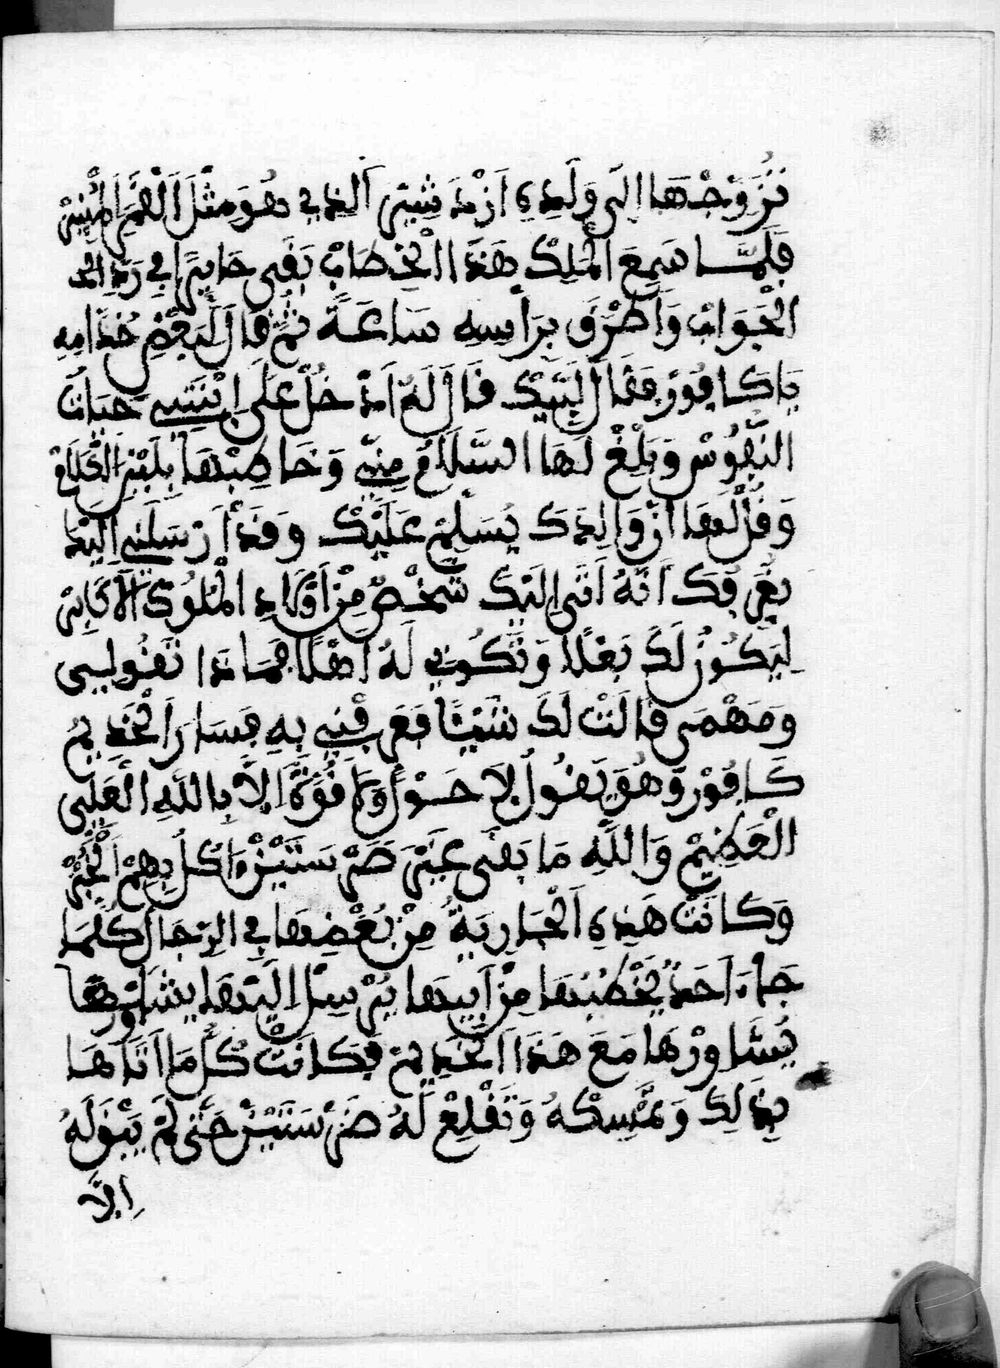 تزوجها الى ولده ازدشير الذي هو مثل القمر المنير
فلما سمع الملك هذا الخطاب بقى حايرا في رد الجـ
الجواب واطرق برأسه ساعة ثم قال لبعض خدامه
ياكافور فقال لبيك قال له ادخل على ابنتي حيات
النفوس وبلغ لها السلام مني وخاطبها بلين الكلام
وقل لها ان والدك يسلم عليك وقد ارسلني اليك
يعرفك انه اتى اليك شخص من اولاد الملوك الاكابر
ليكون لك بعلا وتكوني له اهلا فماذا تقولي
ومهمى قالت لك شيئا فعرفني به فسار الخديم
كافور وهو يقول لا حول ولا قوة الا بالله العلي
العظيم والله ما بقى عني ضرستين اكل بهم الخبز
وكانت هذه الجارية من بغضها في الرجال كلما
جاء احد يخطبها من ابيها يرسل اليها يشاورها
يشاورها مع هذا الخديم فكانت كل ما اتاها
بذلك وتمسكه وتقلع له ضرستين حتى لم يبق له
الا